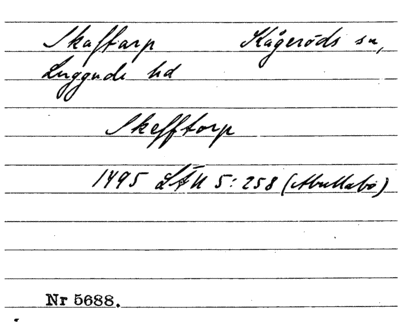 Skaftarp Kågeröds sn,
Luggude hd
Skefftorp
1495 LÄU 5:258 (Abullabö)
Nr 5688.